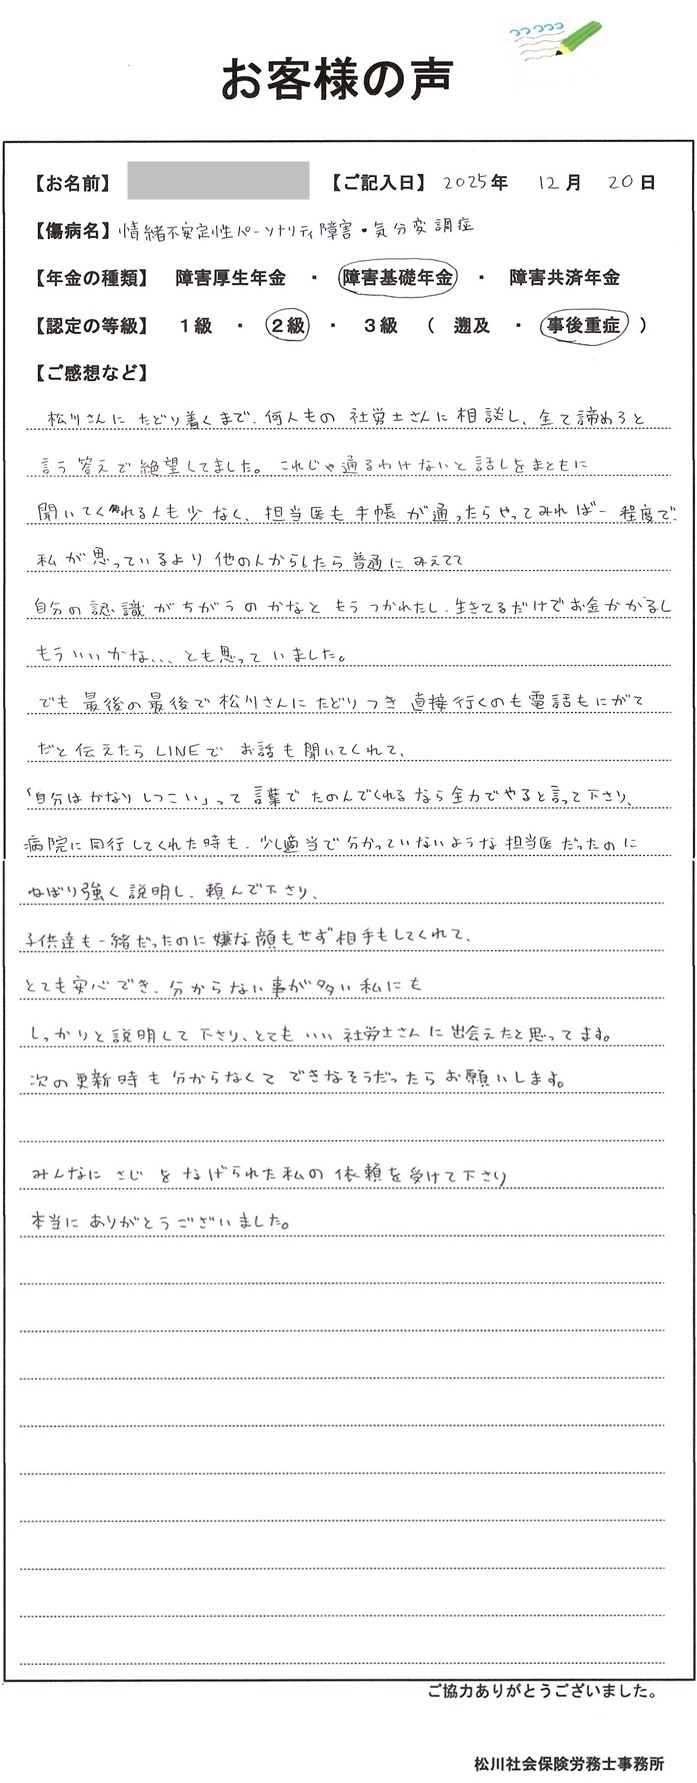 お客様の声
【お名前】 【ご記入日】 2025年 12月 20日
【傷病名】情緒不安定性パーソナリティ障害・気分変調症
【年金の種類】 障害厚生年金 ・ 障害基礎年金 ・ 障害共済年金
【認定の等級】 1級 ・ 2級 ・ 3級 ( 遡及 ・ 事後重症 )
【ご感想など】
松川さんに たどり着くまで、何人もの 社労士さんに 相談し、全て諦めろと
言う答えで 絶望してました。これじゃ通るわけないと 話しをまともに
聞いてくれる人も少なく、担当医も 手帳 が 通ったらやってみれば− 程度で
私が思っているより 他の人からしたら 普通に みえてて
自分の認識がちがうのかなと もう つかれたし、生きてるだけでお金かかるし
もういいかな、、、とも思って いました。
でも 最後の最後で 松川さんに たどりつき 直接行くのも電話もにがて
だと伝えたら LINEで お話も聞いてくれて、
「自分はかなりしつこい」って 言葉で たのんでくれるなら全力でやると言って下さり、
病院に同行してくれた時も、少し適当で分かっていないような担当医だったのに
ねばり強く説明し、頼んで下さり、
子供達も一緒だったのに嫌な顔もせず相手もしてくれて、
とても安心でき、分からない事が多い私にも
しっかりと説明して下さり、とてもいい 社労士さんに出会えたと思ってます。
次の更新時も分からなくて できなそうだったらお願いします。
みんなに さじ を なげられた私の 依頼を受けて下さり
本当に ありがとうございました。
ご協力ありがとうございました。
松川社会保険労務士事務所